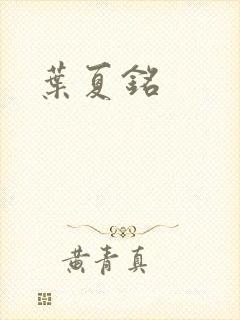 葉夏銘
黄青真